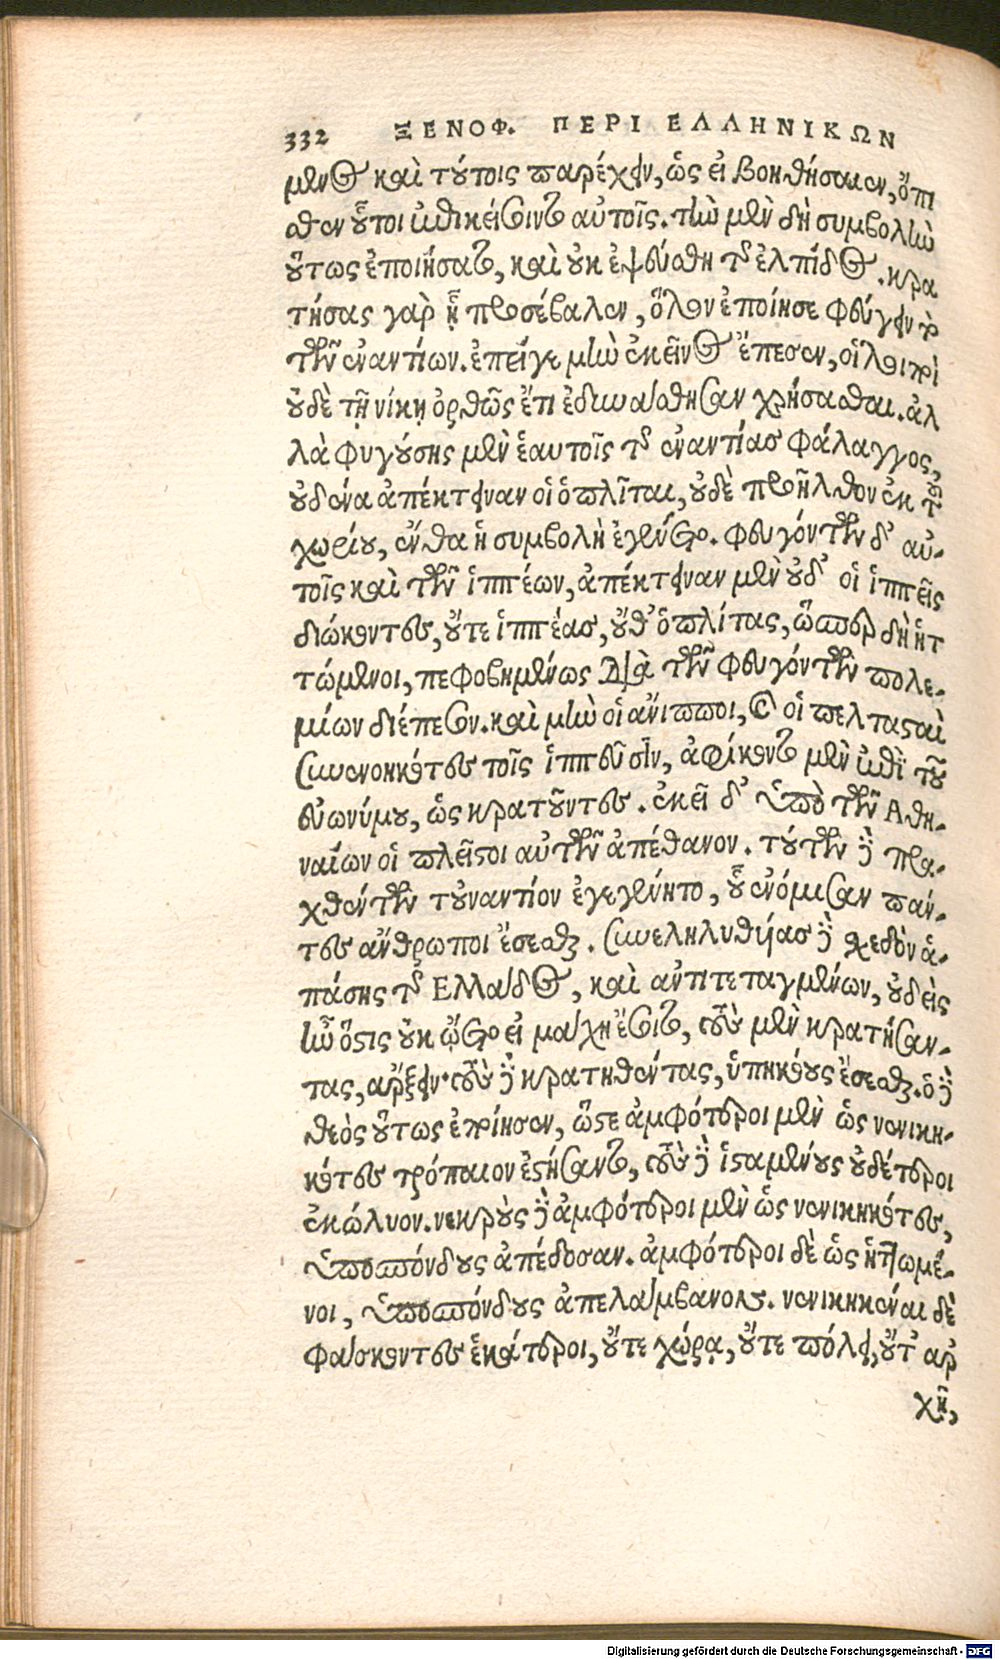 332 ΞΕΝΟΦ. ΠΕΡΙ ΕΛΛΗΝΙΚΩΝ
μενος καὶ τούτοις παρέχειν, ὡς εἰ βοηθήσαιεν, ὄπι
σθεν οὗτοι ἐπικείσοιντο αὐτοῖς. τὴν μὲν δὴ συμβολὴν
οὕτως ἐποιήσατο, καὶ οὐκ ἐψεύσθη τῆς ἐλπίδος. κρα
τήσας γὰρ ᾗ προσέβαλεν, ὅλον ἐποίησε φεύγειν τὸ
τῶν ἐναντίων. ἐπείγε μὴν ἐκεῖνος ἔπεσεν, οἱ λοιποὶ
οὐδὲ τῇ νίκῃ ὀρθῶς ἔτι ἐδυνάσθησαν χρήσασθαι. ἀλ
λὰ φυγούσης μὲν ἑαυτοῖς τῆς ἐναντίας φάλαγγος,
οὐδένα ἀπέκτειναν οἱ ὁπλῖται, οὐδὲ προῆλθον ἐκ τοῦ
χωρίου, ἔνθα ἡ συμβολὴ ἐγένετο. φευγόντων δ' αὐ-
τοῖς καὶ τῶν ἱππέων, ἀπέκτειναν μὲν οὐδ' οἱ ἱππεῖς
διώκοντες, οὔτε ἱππέας, οὔθ' ὁπλίτας, ὥσπερ δὴ ἡτ
τώμενοι, πεφοβημένως διὰ τῶν φευγόντων πολε-
μίων διέπεσον. καὶ μὴν οἱ ἄνιπποι, καὶ οἱ πελτασταὶ
συννενικηκότες τοῖς ἱππεῦσιν, ἀφίκοντο μὲν ἐπὶ τοῦ
εὐωνύμου, ὡς κρατοῦντες. ἐκεῖ δ' ὑπὸ τῶν Ἀθη-
ναίων οἱ πλεῖστοι αὐτῶν ἀπέθανον. τούτων δὲ πρα-
χθέντων τοὐναντίον ἐγεγένητο, οὗ ἐνόμισαν πάν-
τες ἄνθρωποι ἔσεσθαι. συνεληλυθυίας δὲ σχεδὸν ἁ-
πάσης τῆς Ελλάδος, καὶ ἀντιτεταγμένων, οὐδεὶς
ἦν ὅστις οὐκ ᾤετο εἰ μάχη ἔσοιτο, τοὺς μὲν κρατήσαν-
τας, ἄρξειν· τοὺς δὲ κρατηθέντας, ὑπηκόους ἔσεσθαι. ὁ δὲ
θεὸς οὕτως ἐποίησεν, ὥστε ἀμφότεροι μὲν ὡς νενικη-
κότες τρόπαιον ἐστήσαντο, τοὺς δὲ ἱσταμένους οὐδέτεροι
ἐκώλυον. νεκροὺς δὲ ἀμφότεροι μὲν ὡς νενικηκότες,
ὑποσπόνδους ἀπέδοσαν. ἀμφότεροι δὲ ὡς ἡττωμέ-
νοι, ὑποσπόνδους ἀπελάμβανον. νενικηκέναι δὲ
φάσκοντες ἑκάτεροι, οὔτε χώρᾳ, οὔτε πόλει, οὔτ' ἀρ
χῇ,
Digitalisierung gefördert durch die Deutsche Forschungsgemeinschaft - DFG